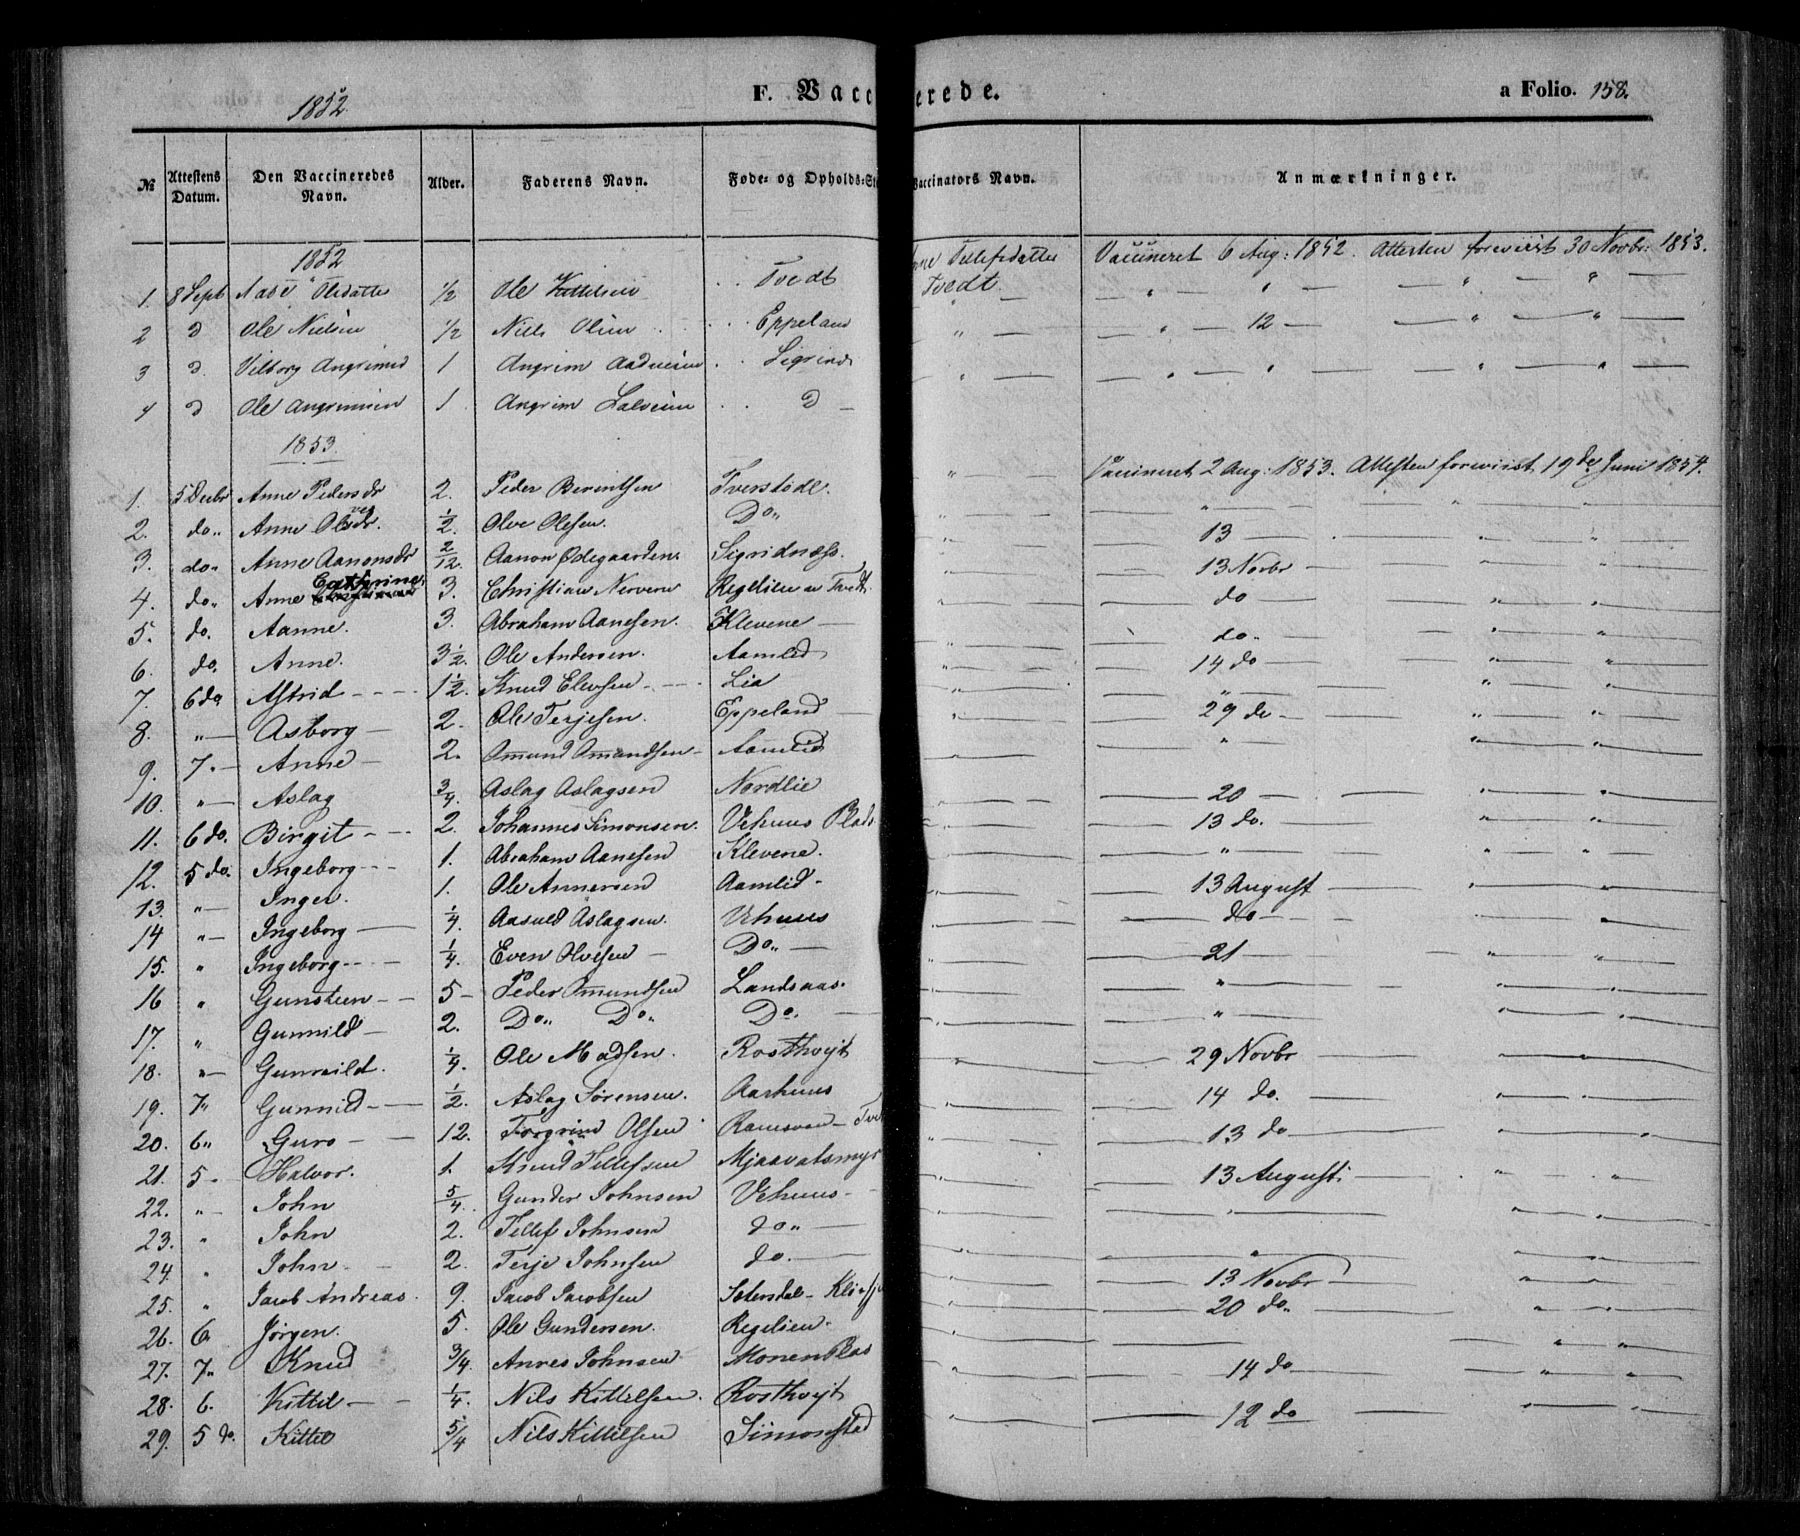 1852. F. Vaccinerede. a Folio. 158.
№ Attestens Datum. Den Vaccineredes Navn. Alder. Faderens Navn. Føde- og Opholds-St Vaccinators Navn. Anmærkninger.
1852
1. 8 Sept Olsdatter ½ Ole Kittelsen Tvedt Tellefsdatter Tvedt Vaccineret 6 Aug: 1852. Attesten foreviist 30 Novbr: 1853.
2 D Ole Nielsen ½ Niels Olsen Eppeland " — " — " — " — " —
3 D. Vilborg Angrimsd 1 Angrim Aadnesen Sigrinds " — 12 — " — " —
4 D Ole Angrimsen 1 Angrim D — " — " — " — " — " —
1853.
1. 5 Decbr Anne Pedersdr 2. Peder Berintsen Tverstødl. " — Vaccineret 2 Aug: 1853. Attesten foreviist 19de Juni 1854.
2. do" Anne Olvesdr. ½. Olve Olesen. Do" " — " — " — " —
3. do" Anne Aanonsdr 2/12. Aanon Ødegaarden. Sigridnæss. " — 13 — " — " —
4. do" Anne Cathrine 3. Christian Nerverv Regelien u Tvedt. " — 13 Novbr — " — " —
5. do. Aanne. 3. Abraham Aanesen. Klevene — " — do — " — " —
6. do. Anne. 3½. Ole Andersen. Aamlid " — do. — " — " —
7. 6 do. Astrid — 1½. Knud Elevsen — Lia " — 14 do — " — " —
8. " — Asborg — 2. Ole Terjesen. Eppeland — " — " — " — " —
9. 7. — Anne — 2. Omund Omundsen — Aamlid " — 29 do — " — " —
10. " — Aslag ¾. Aslag Aslagsen Nordlie " — " — " — " —
11. 6 do. Birgit — 2. Johannes Simonsen. Vehuus Plads " — 20 — " — " —
12. 5 do. Ingeborg — 1. Abraham Aanesen Klevene. " — 13 do. — " — " —
13. " — Inger. 1. Ole Annersen Aamlid — " — " — " — " —
14 " — Ingeborg — ¼. Aasuld Aslagsen. Vehuus " — 13 August — " — " —
15. " Ingeborg — ¼. Even Olvesen — Do" — " — do — " —
16 " Gunsteen — 5 — Peder Omundsen Landsaas. " — 21 — " — " —
17. " Gunnild — 2. Do" Do" Do. — " — " — " — " —
18. " — Gunneild. ¼. Ole Madsen. Rosthvejt " — " — " — " —
19. 7" Gunnild — ½. Aslag Sørensen. Aashuus " — 29 Novbr — " —
20. 6" Guro — 12. Torgrim Olsen Ramsvan — Tved " — 14 do. — " — " —
21. 5 " Halvor. 1. Knud Tellefsen Mjaavatsmyr " — 13 do — " — " —
22. " — John 5/4. Gunder Johnsen Vehuus — " — 13 August. — " — " —
23. " John 2. Tellef Johnsen do" — " — " — " — " —
24. " John — 2. Terje Johnsen do. — " — " — " — " —
25. " Jacob Andreas. 9. Jacob Jacobsen Sætersdal — " — 13 Novbr — " — " —
26. 6 Jørgen. 5. Ole Gundersen. Regelien. " — 20 do. — " — " —
27. 7" Knud ¾ Anres Johnsen Monen Plas " — " — " —
28. 6. Kittil — ¼. Nils Kittelsen. Rosthvejt " — 14 do — " — " —
29. 5 do. Kittel 5/4 Nils Kittelsen Simonsted " — 12 do — " — " —